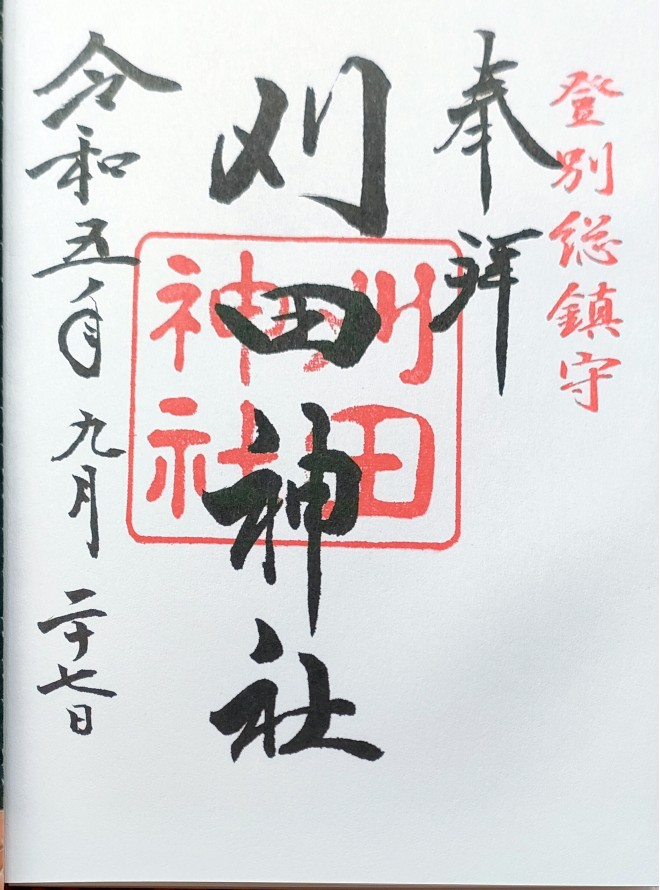 登別総鎮守
奉拝
刈田神社
刈田
神社
令和五年九月二十七日